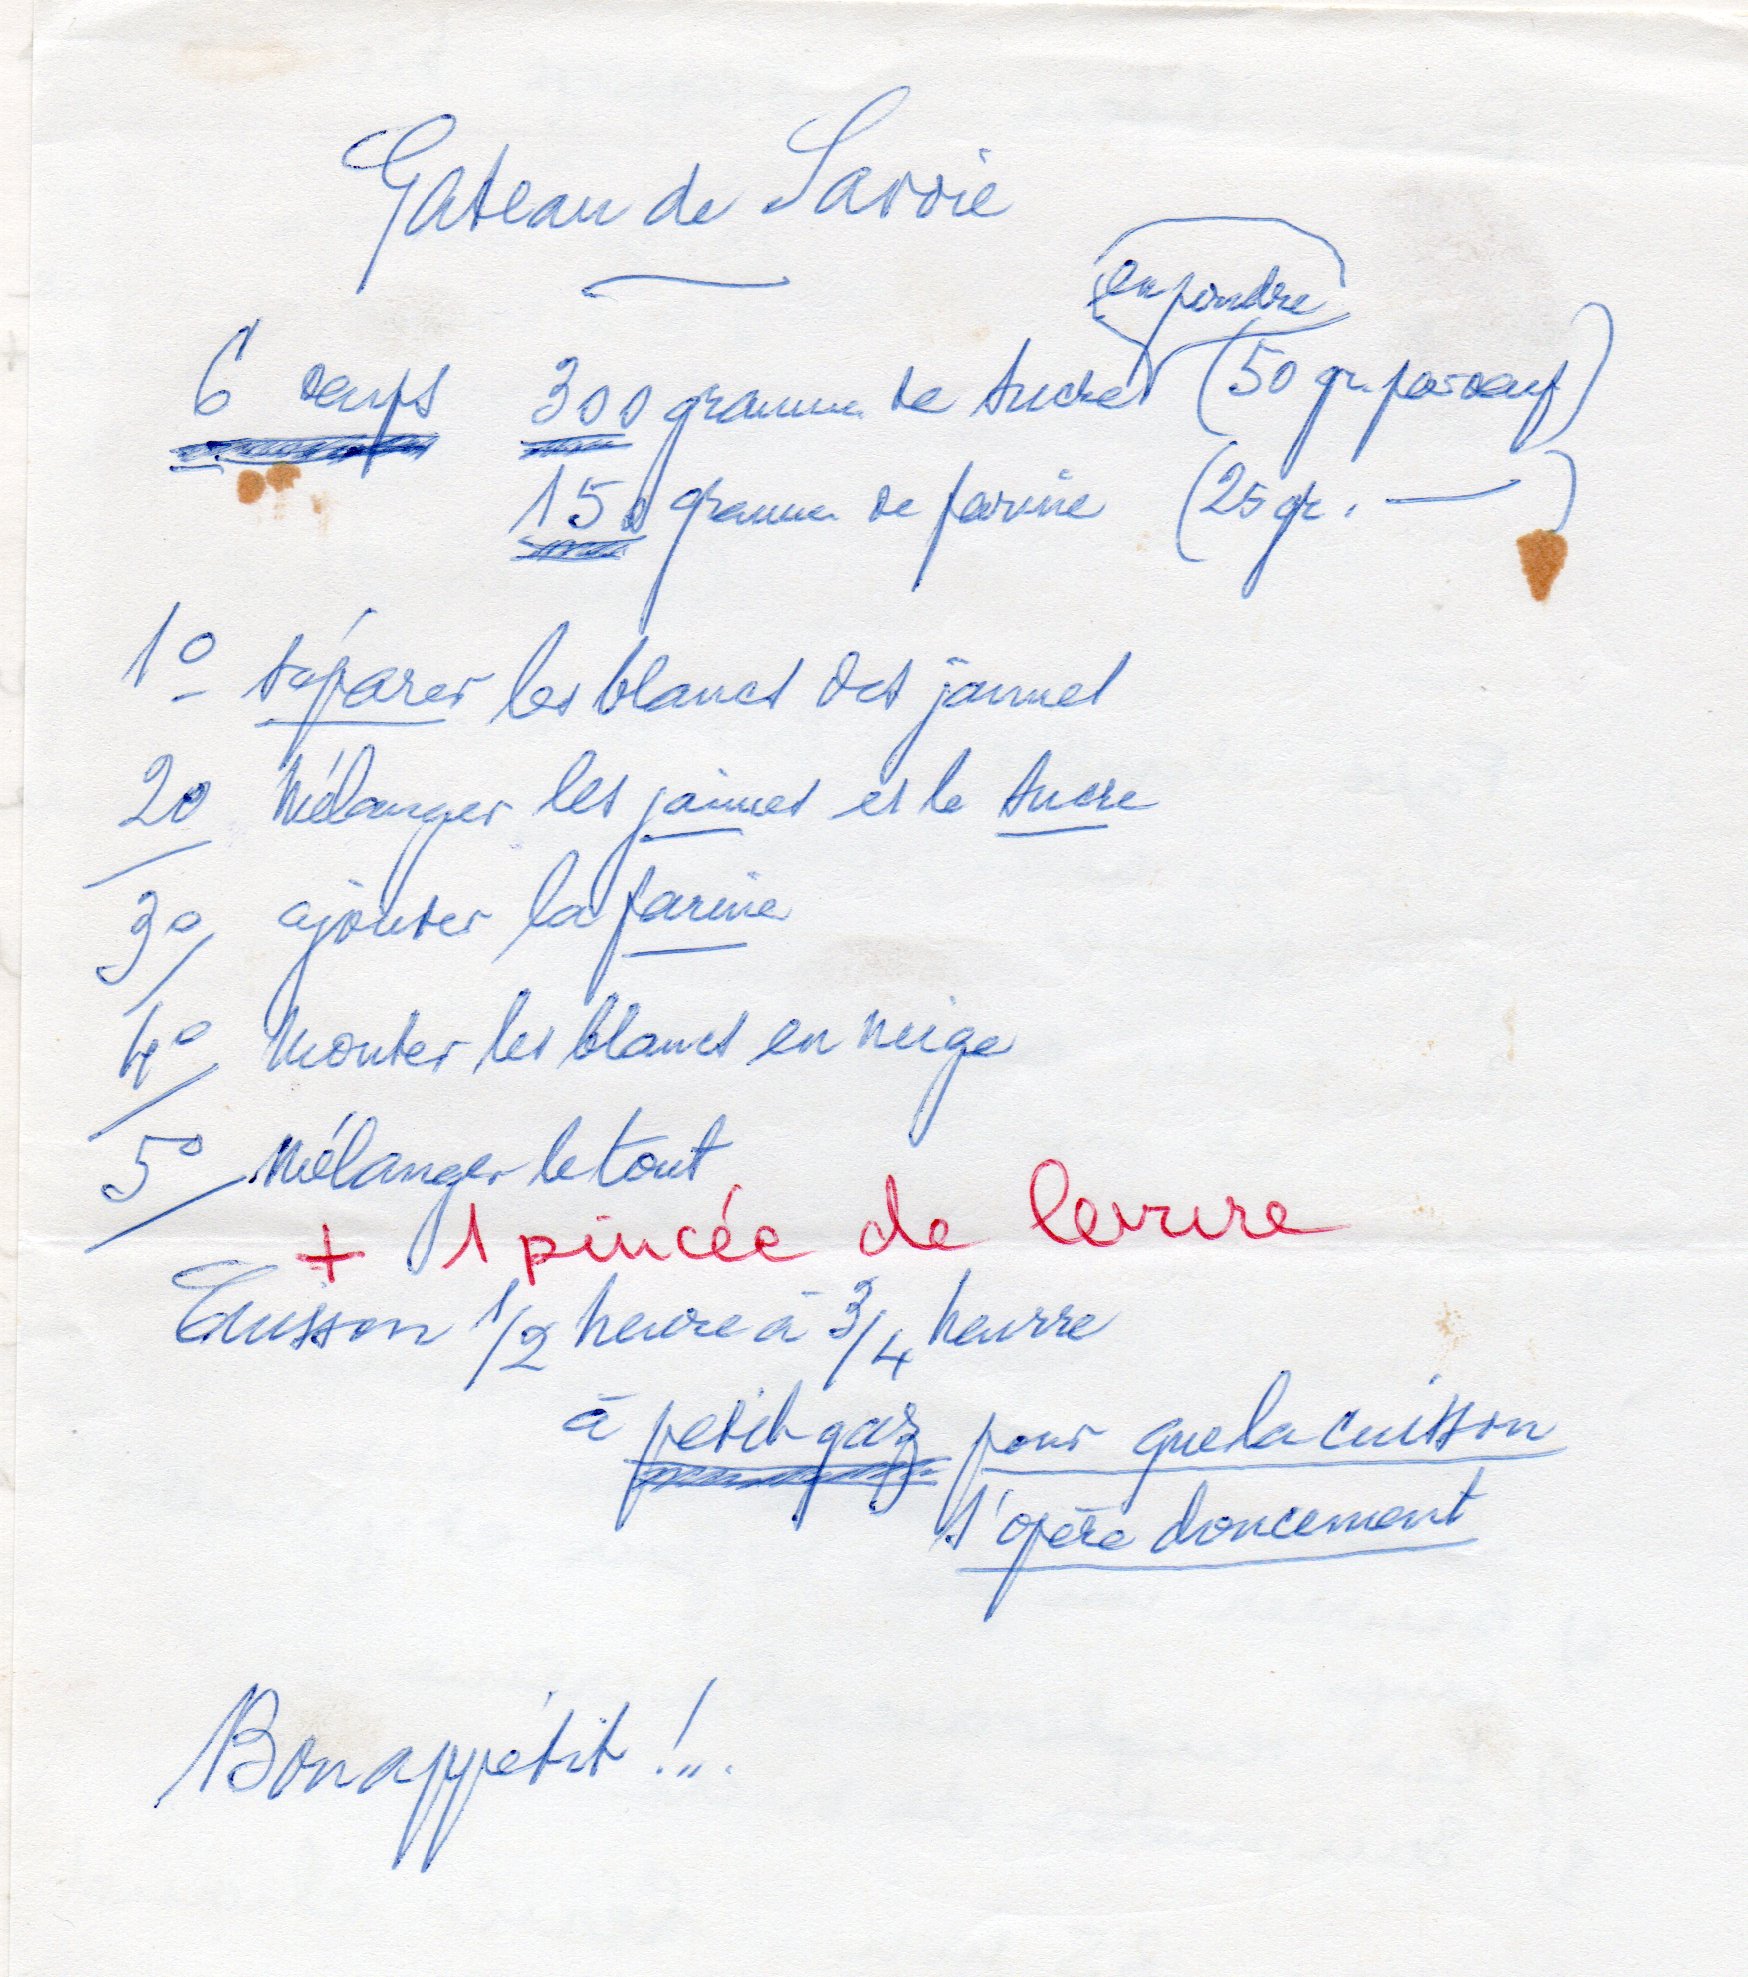 Gateau de Savoie
en poudre
6 oeufs 300 gramme de sucre (50 gr. par oeuf)
150 gramme de farine (25 gr. — )
1º séparer les blancs des jaunes
2º Mélanger les jaunes et le sucre
3º ajouter la farine
4º Monter les blancs en neige
5º Mélanger le tout
+ 1 pincée de levure
Cuisson 1/2 heure à 3/4 heure
à petit gaz pour que la cuisson
s'opère doucement
Bon appétit !...